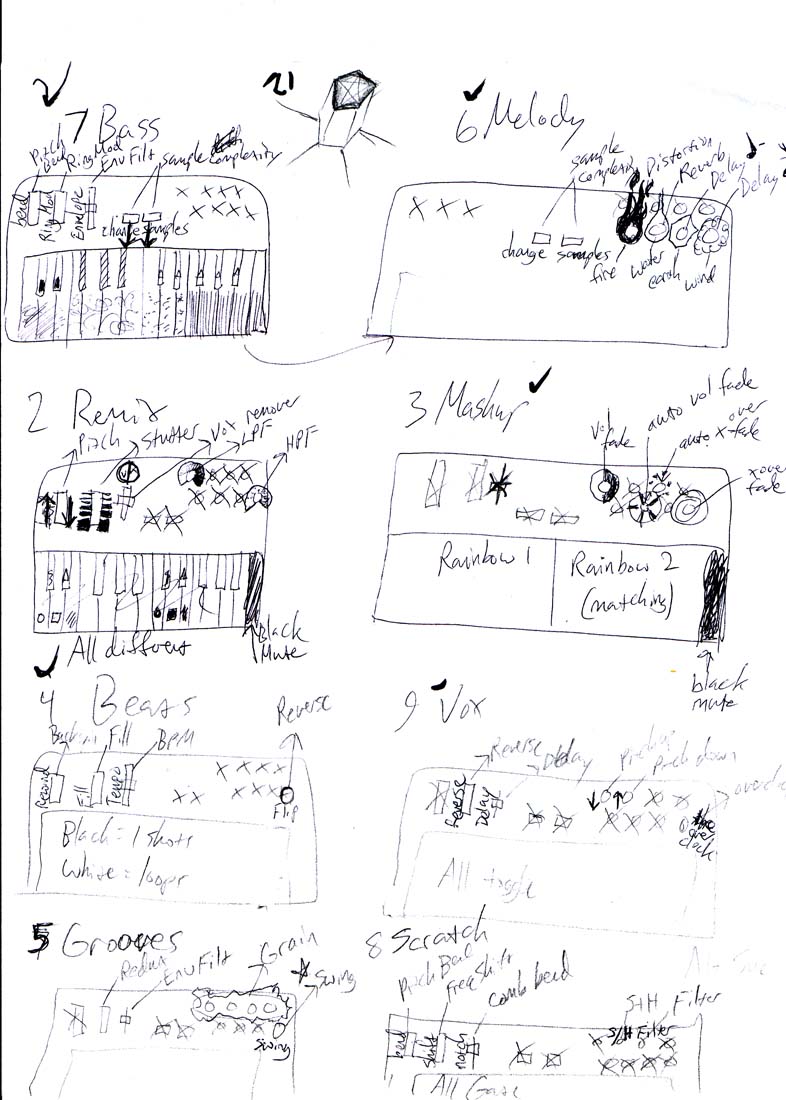 21
7 Bass
Pitch Bend
Ring Mod
Env Filt
sample complexity
bend
Ring Mod
Envelope
change samples
6 Melody
sample complexity
Distortion
Reverb
Delay
Delay
change samples
fire
water
earth
wind
2 Remix
Pitch
Stutter
Vox remover
LPF
HPF
All different
Black Mute
3 Mashup
Vol fade
auto vol fade
auto x-over fade
xover fade
Rainbow 1
Rainbow 2
(matching)
black mute
4 Beats
Fill
BPM
Reverse
Fill
Tempo
Flip
Black = 1 shots
White = loops
9 Vox
Reverse
Delay
Pitch up
Pitch down
Reverse
Delay
over clock
All toggle
5 Grooves
Redux
Env Filt
Grain
Swing
Swing
8 Scratch
Pitch Bend
Freq Shift
comb bend
S+H Filter
bend
shift
notch
S/H Filter
All Gate